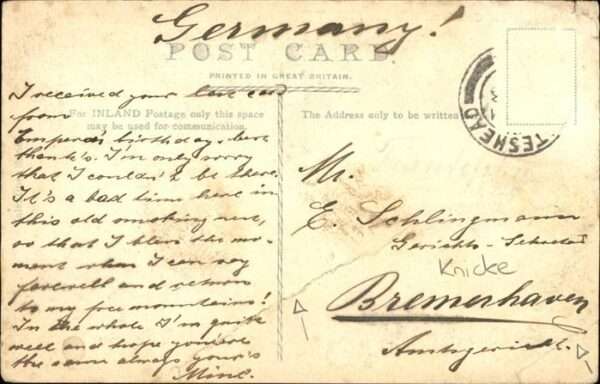 Germany!
POST CARD.
PRINTED IN GREAT BRITAIN.
For INLAND Postage only this space
may be used for communication.
The Address only to be written
TESHEAD
I received your last card
from
Emperor's birthday, best
thank's. I'm only sorry
that I couldn't be there.
It's a bad time here in
this old smoking
so that I bless the mo-
ment when I can say
farewell and return
to my free mountains!
In the whole I'm quite
well and hope you're
the same always your's
Mr.
E. Schlingmann
Gerichts-Sekretär
Knicke
Bremerhaven
Amtsgericht.